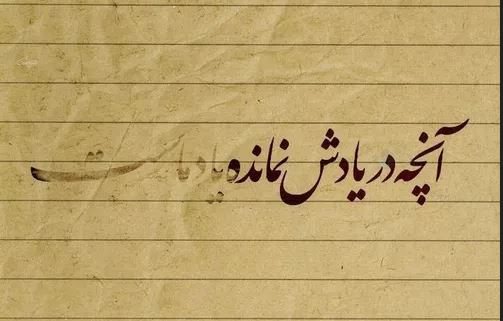 آنچه در یادش نمانده یاد ماست